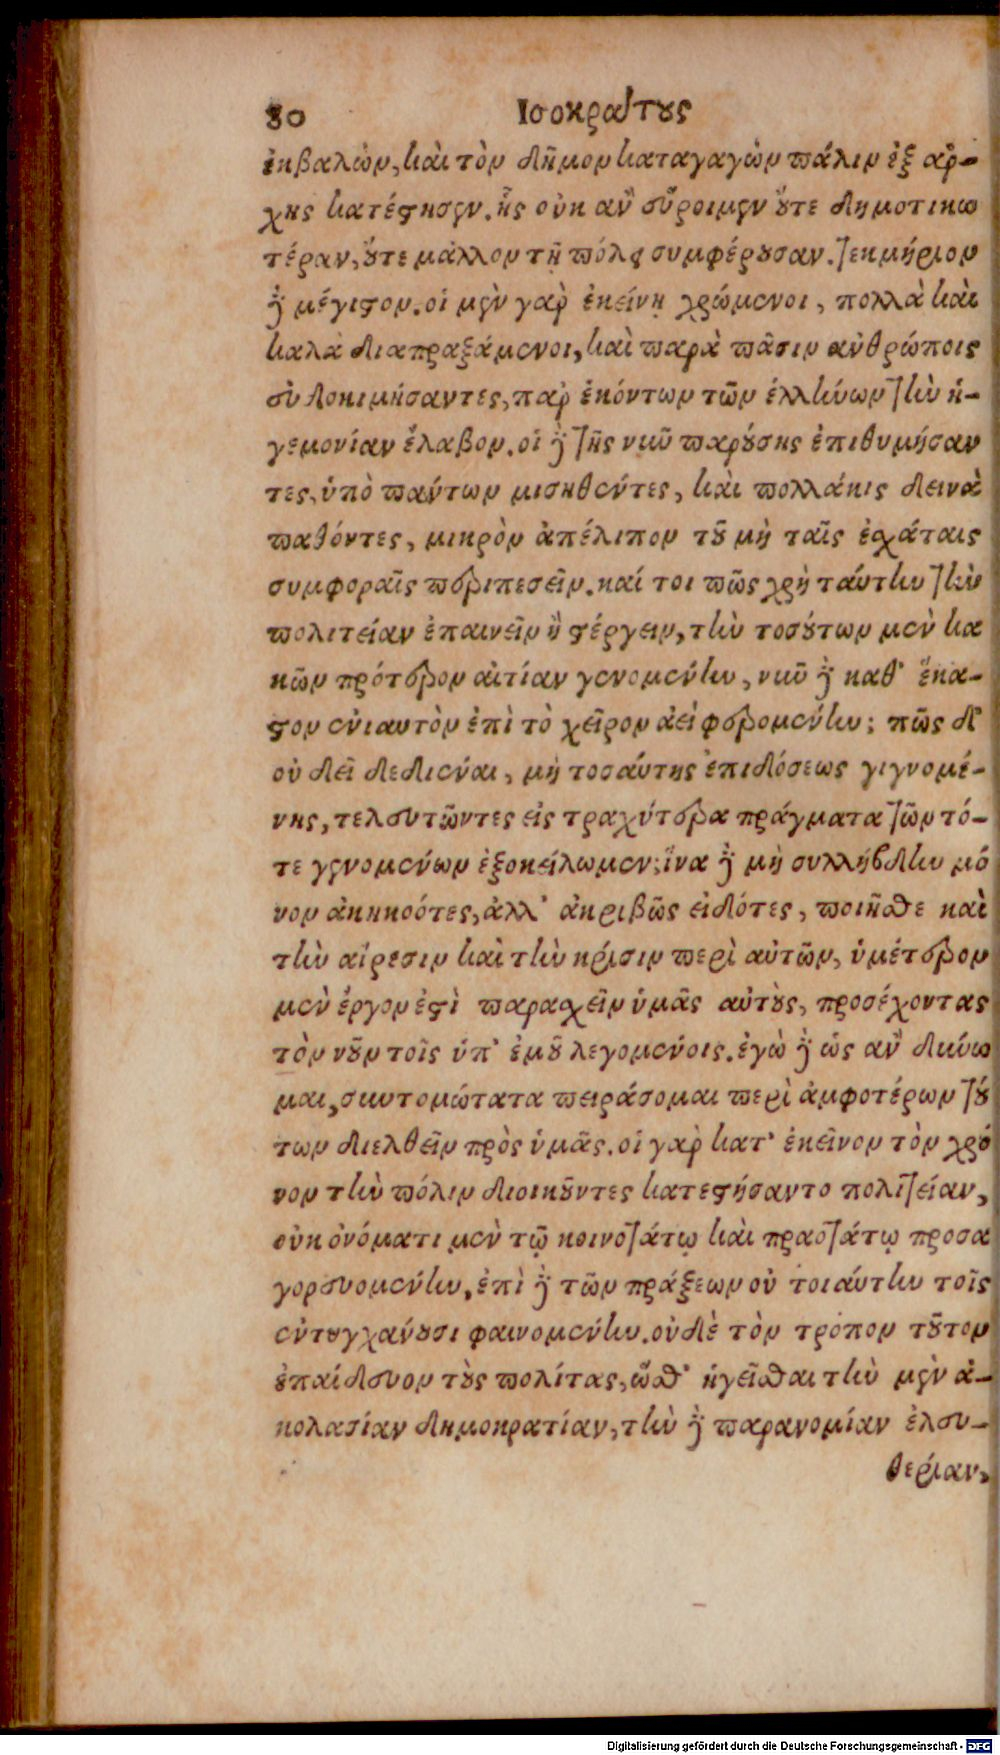 80 Ισοκράτους
ἐκβαλὼν, καὶ τὸν δῆμον καταγαγὼν πάλιν ἐξ ἀρ-
χῆς κατέστησεν. ἧς οὐκ ἂν εὕροιμεν οὔτε δημοτικω
τέραν, οὔτε μᾶλλον τῇ πόλει συμφέρουσαν. τεκμήριον
δὲ μέγιστον. οἱ μὲν γὰρ ἐκείνῃ χρώμενοι, πολλὰ καὶ
καλὰ διαπραξάμενοι, καὶ παρὰ πᾶσιν ἀνθρώποις
εὐδοκιμήσαντες, παρ ἑκόντων τῶν ἑλλήνων τὴν ἡ-
γεμονίαν ἔλαβον. οἱ δὲ τῆς νῦν παρούσης ἐπιθυμήσαν
τες, ὑπὸ πάντων μισηθέντες, καὶ πολλάκις δεινὰ
παθόντες, μικρὸν ἀπέλιπον τοῦ μὴ ταῖς ἐσχάταις
συμφοραῖς περιπεσεῖν. καί τοι πῶς χρὴ ταύτην τὴν
πολιτείαν ἐπαινεῖν ἢ στέργειν, τὴν τοσούτων μὲν κα
κῶν πρότερον αἰτίαν γενομένην, νῦν δὲ καθ' ἕκα-
στον ἐνιαυτὸν ἐπὶ τὸ χεῖρον ἀεὶ φερομένην; πῶς δ'
οὐ δεῖ δεδιέναι, μὴ τοσαύτης ἐπιδόσεως γιγνομέ-
νης, τελευτῶντες εἰς τραχύτερα πράγματα τῶν τό-
τε γενομένων ἐξοκείλωμεν; ἵνα δὲ μὴ συλλήβδην μό
νον ἀκηκοότες, ἀλλ' ἀκριβῶς εἰδότες, ποιῆσθε καὶ
τὴν αἵρεσιν καὶ τὴν κρίσιν περὶ αὐτῶν, ὑμέτερον
μὲν ἔργον ἐστὶ παρασχεῖν ὑμᾶς αὐτοὺς, προσέχοντας
τὸν νοῦν τοῖς ὑπ' ἐμοῦ λεγομένοις. ἐγὼ δὲ ὡς ἂν δύνω
μαι, συντομώτατα πειράσομαι περὶ ἀμφοτέρων τού
των διελθεῖν πρὸς ὑμᾶς. οἱ γὰρ κατ' ἐκεῖνον τὸν χρό
νον τὴν πόλιν διοικοῦντες κατεστήσαντο πολιτείαν,
οὐκ ὀνόματι μὲν τῷ κοινοτάτῳ καὶ πραοτάτῳ προσα
γορευομένην, ἐπὶ δὲ τῶν πράξεων οὐ τοιαύτην τοῖς
ἐντυγχάνουσι φαινομένην. οὐδὲ τὸν τρόπον τοῦτον
ἐπαίδευον τοὺς πολίτας, ὥσθ' ἡγεῖσθαι τὴν μὲν ἀ-
κολασίαν δημοκρατίαν, τὴν δὲ παρανομίαν ἐλευ-
θερίαν,
Digitalisierung gefördert durch die Deutsche Forschungsgemeinschaft - DFG